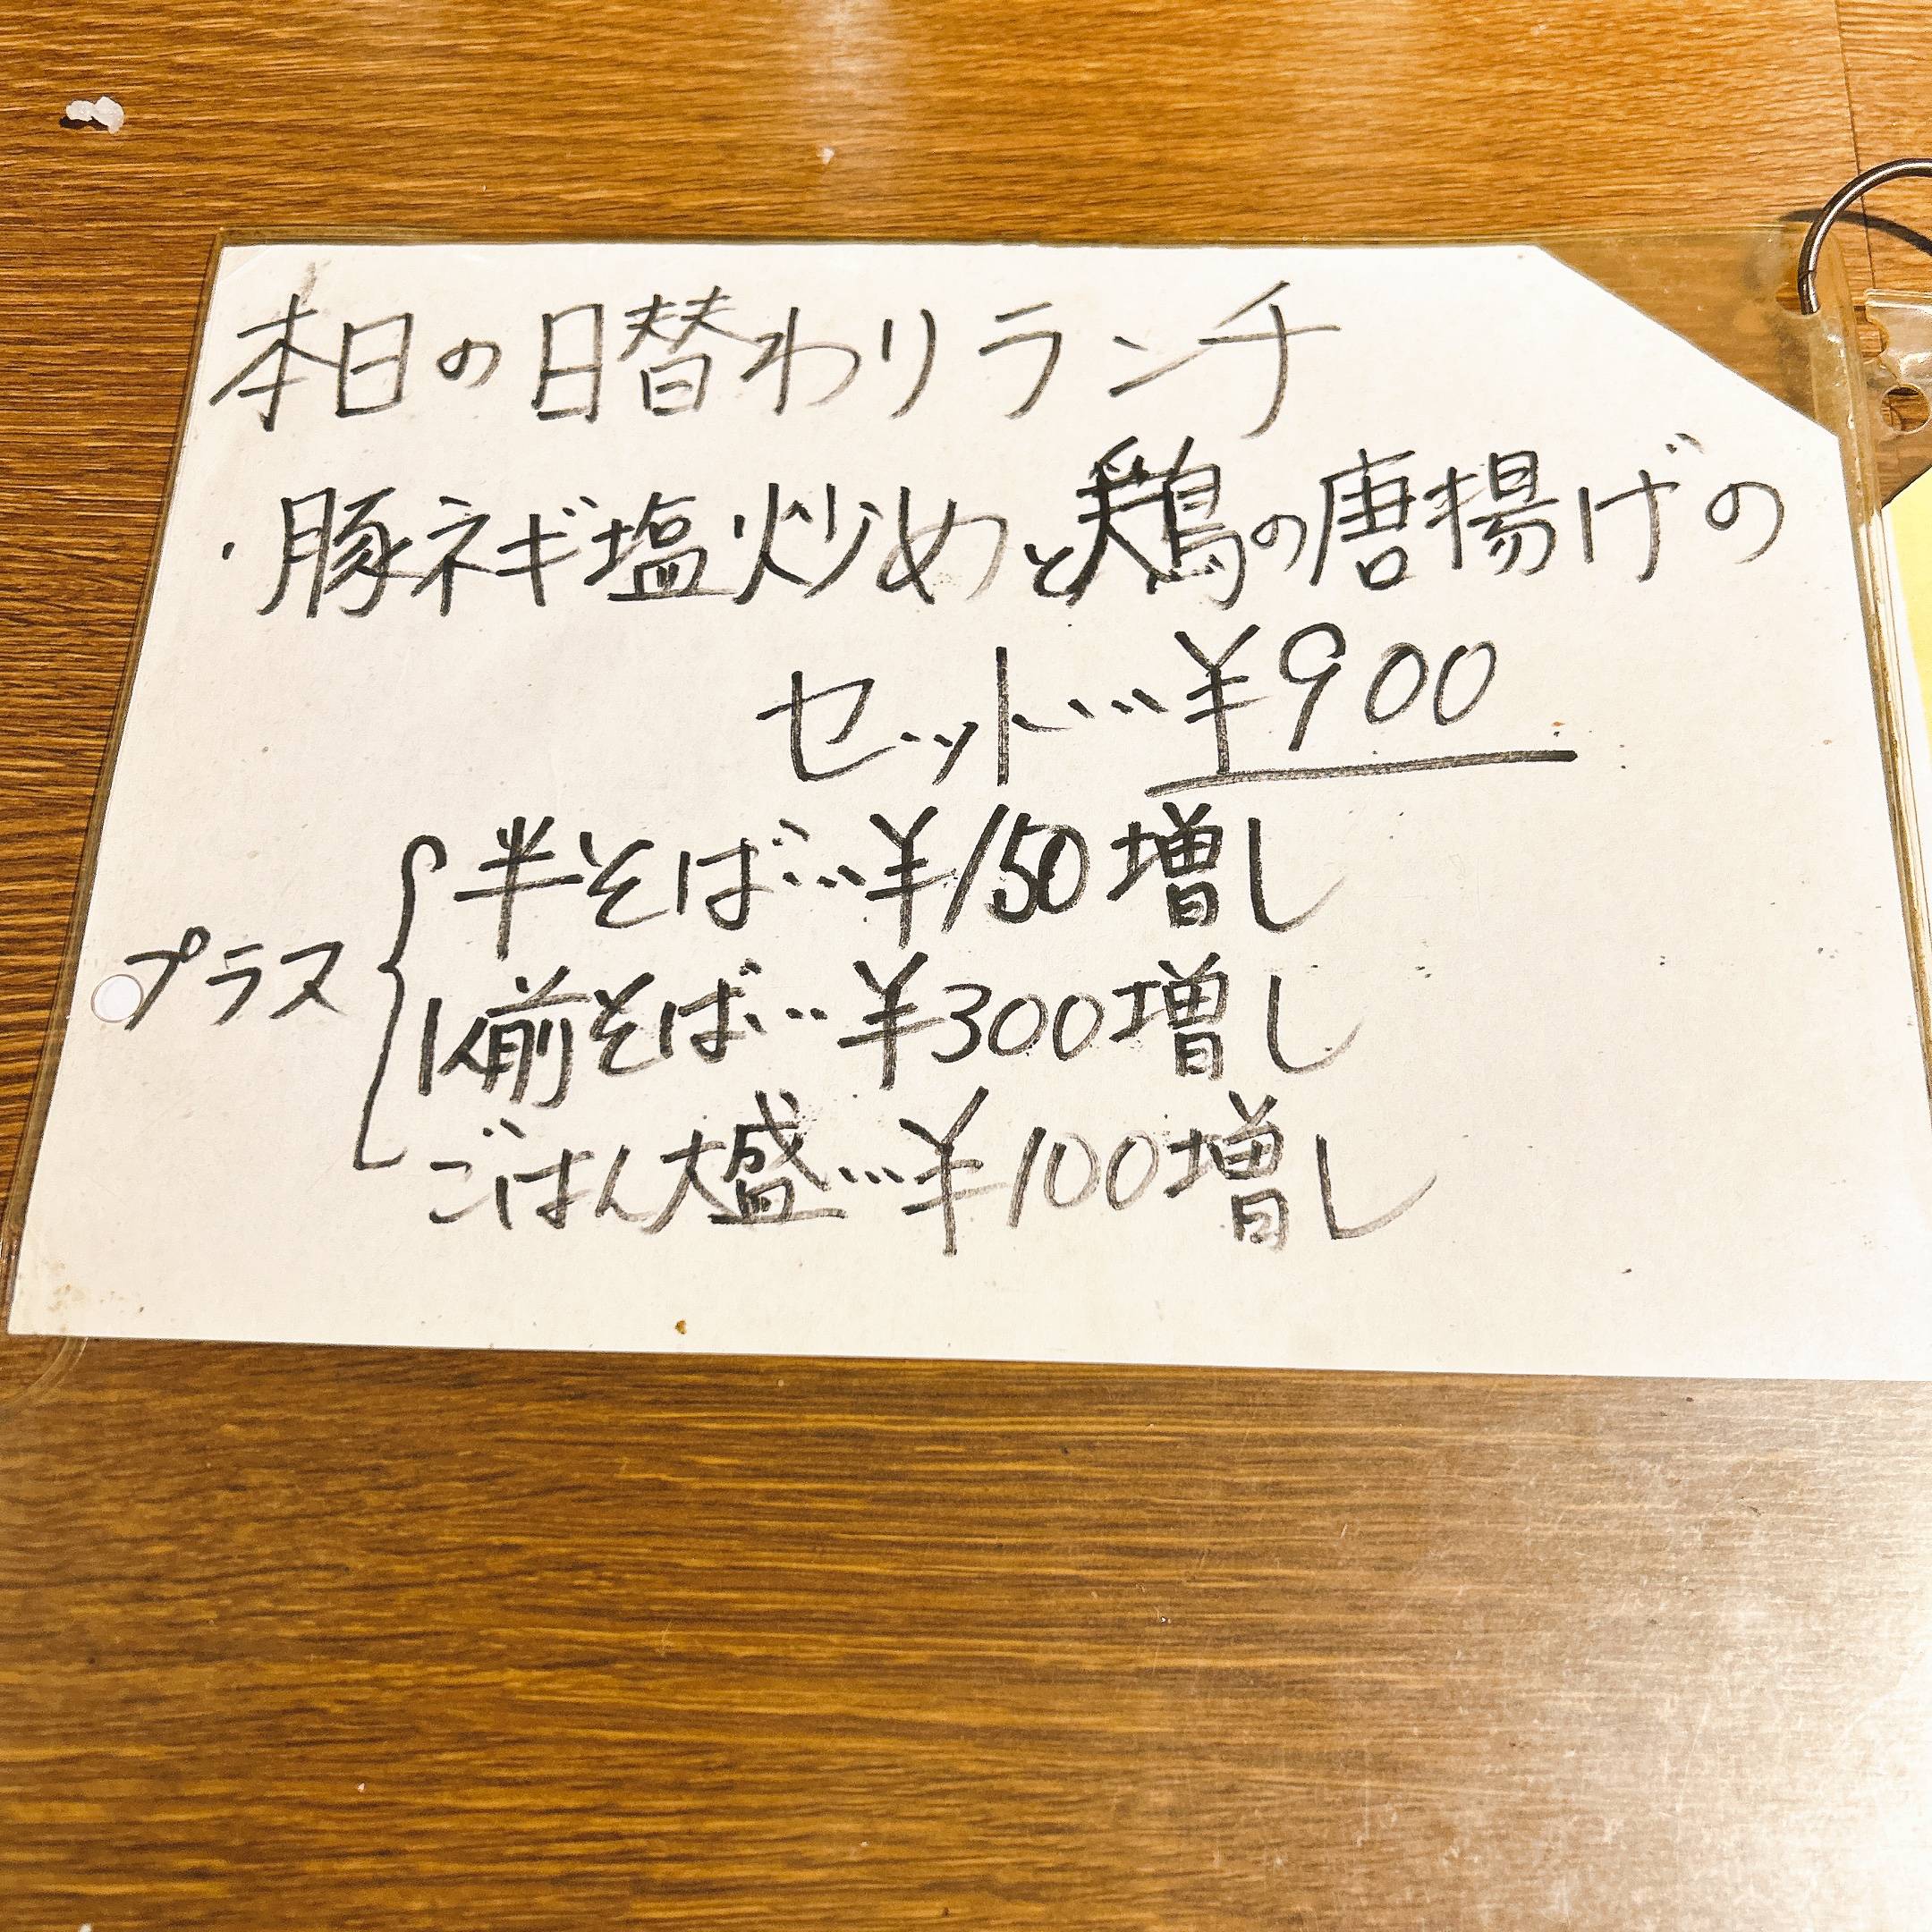 本日の日替わりランチ
・豚ネギ塩炒めと鶏の唐揚げの
セット……¥900
プラス
半そば……¥150増し
1人前そば……¥300増し
ごはん大盛……¥100増し